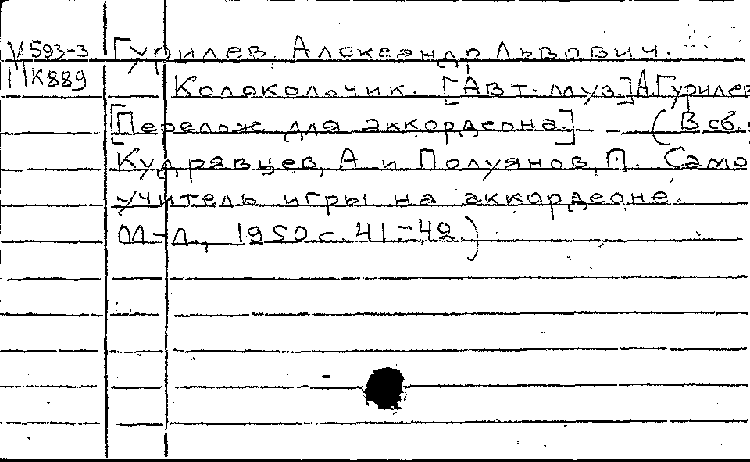 М593-3 Гурилев, Александр Львович.
МК889
Колокольчик. [Авт. муз.] А. Гурилев
[Перелож для аккордеона] – (В сб.:
Кудрявцев, А и Полуянов, П. Само
учитель игры на аккордеоне.
М-Л, 1950 с. 41-42.)